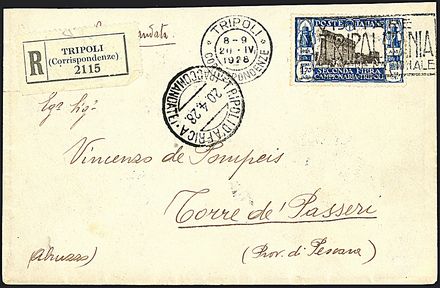 R
TRIPOLI
(Corrispondenze)
2115
TRIPOLI
8-9
20 · IV
1928
CORRISPONDENZE
TRIPOLI D'AFRICA
RACCOMANDATE
20.4.28
POSTE ITALIANE
SECONDA FIERA
CAMPIONARIA TRIPOLI
Vincenzo de Pompeis
Torre de' Passeri
(Abruzzo)
(Prov. di Pescara)